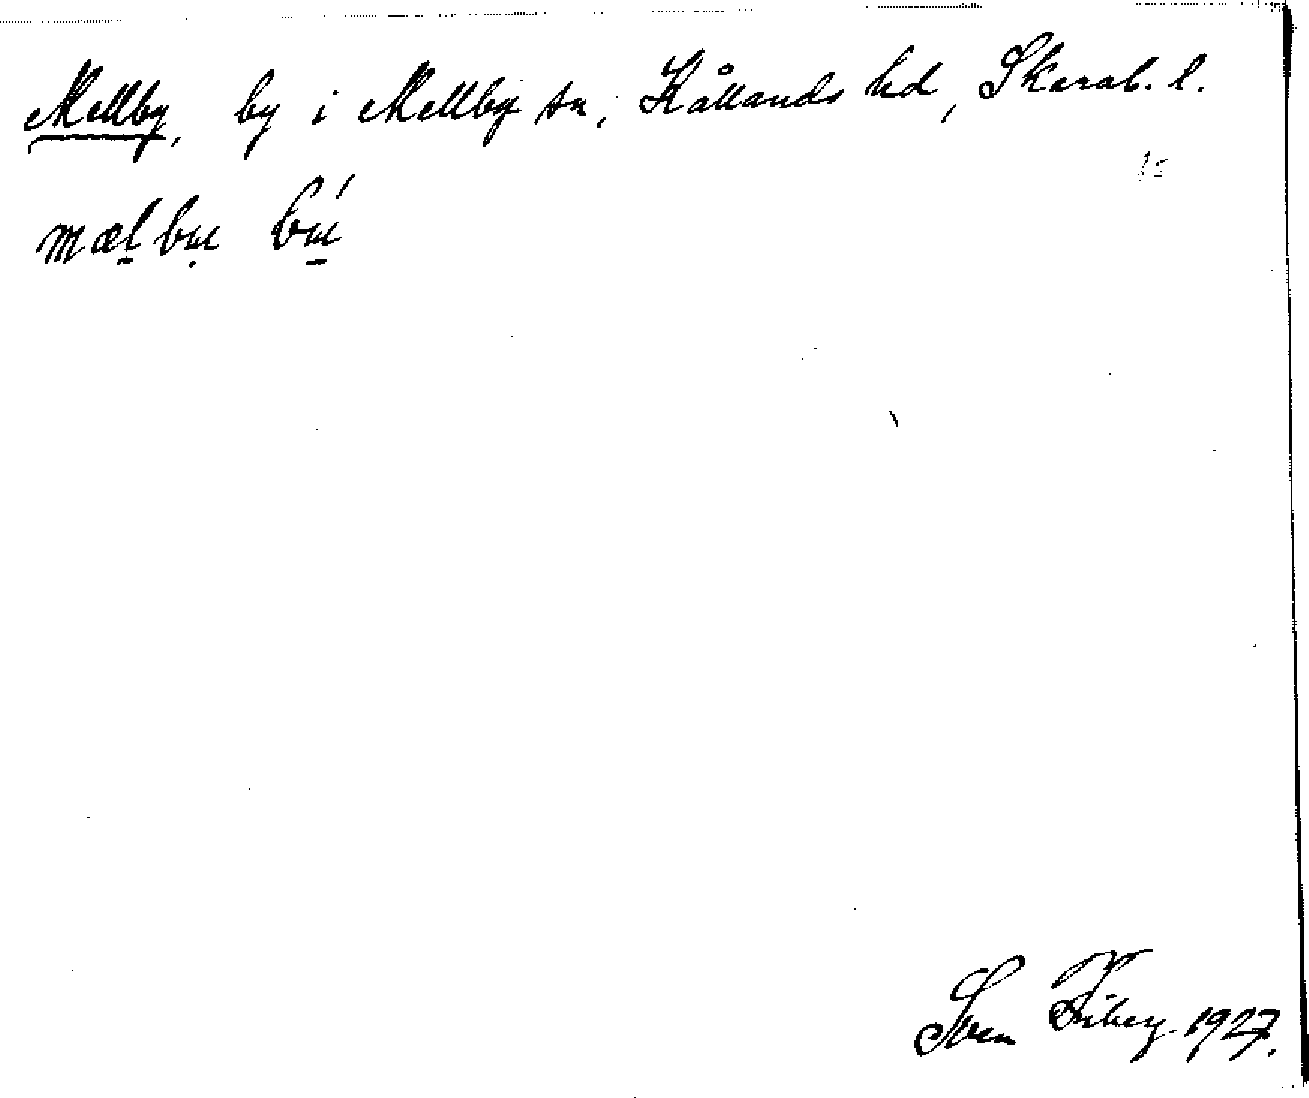 Mellby, by i Mellby sn, Kållands hd, Skarab. l.
mælbɯ bɯ́
Sven 1927.